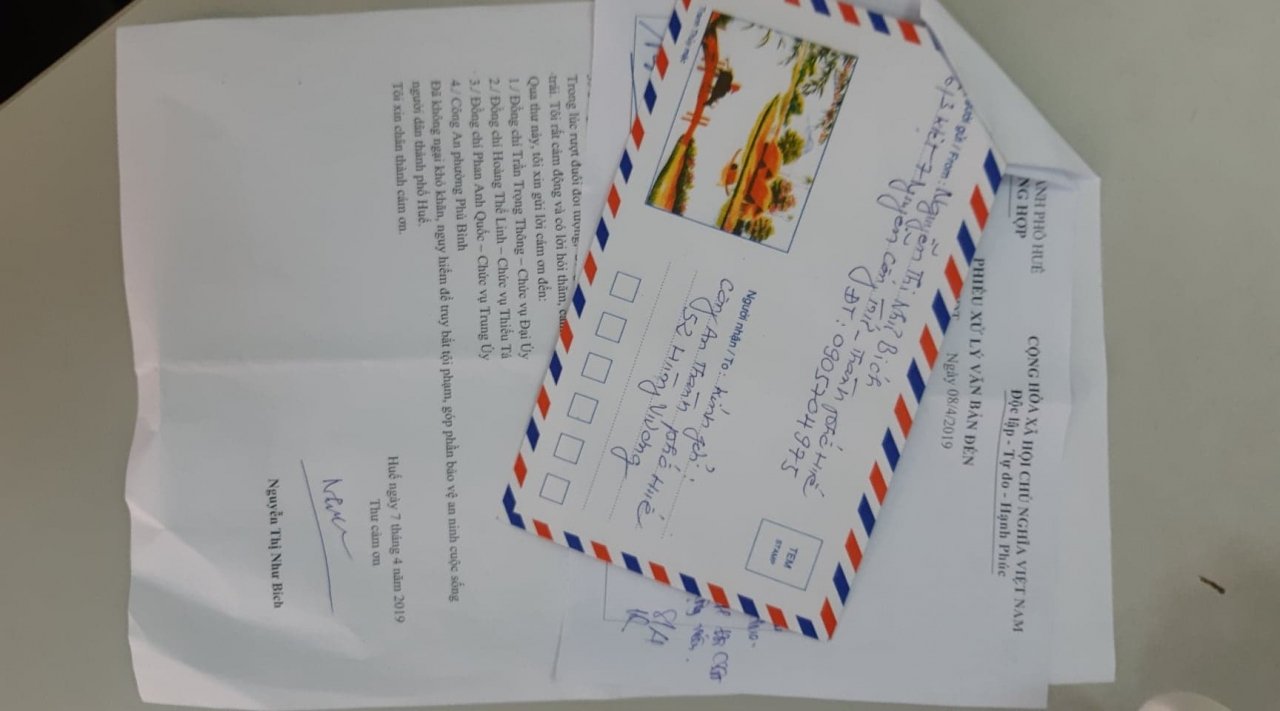 ÀNH PHỐ HUẾ
NG HỢP
CỘNG HÒA XÃ HỘI CHỦ NGHĨA VIỆT NAM
Độc lập - Tự do - Hạnh Phúc
PHIẾU XỬ LÝ VĂN BẢN ĐẾN
Ngày 08/4/2019
Người gửi / From: Nguyễn Thị Như Bích
6/3 kiệt 7 Nguyễn Công Trứ - Thành phố Huế
ĐT: 0905704975
TEM
STAMP
Người nhận / To: Kính gửi:
Công An Thành phố Huế
52 Hùng Vương
Trong lúc rượt đuổi đối tượng
trái. Tôi rất cảm động và có lời hỏi thăm, cảm
Qua thư này, tôi xin gửi lời cảm ơn đến:
1/ Đồng chí Trần Trọng Thông – Chức vụ Đại Úy
2/ Đồng chí Hoàng Thế Linh – Chức vụ Thiếu Tá
3./ Đồng chí Phan Anh Quốc – Chức vụ Trung Úy
4./ Công An phường Phú Bình
Đã không ngại khó khăn, nguy hiểm để truy bắt tội phạm, góp phần bảo vệ an ninh cuộc sống
người dân thành phố Huế.
Tôi xin chân thành cảm ơn.
Huế ngày 7 tháng 4 năm 2019
Thư cảm ơn
Nguyễn Thị Như Bích
8/4